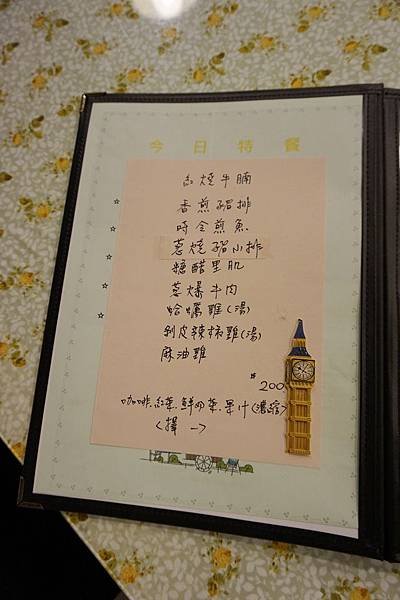 今日特餐
紅燒牛腩
香煎豬排
時令煎魚
蔥燒豬小排
糖醋里肌
蔥爆牛肉
蛤蠣雞(湯)
剝皮辣椒雞(湯)
麻油雞
200
咖啡.紅茶.鮮奶茶.果汁
<擇一>